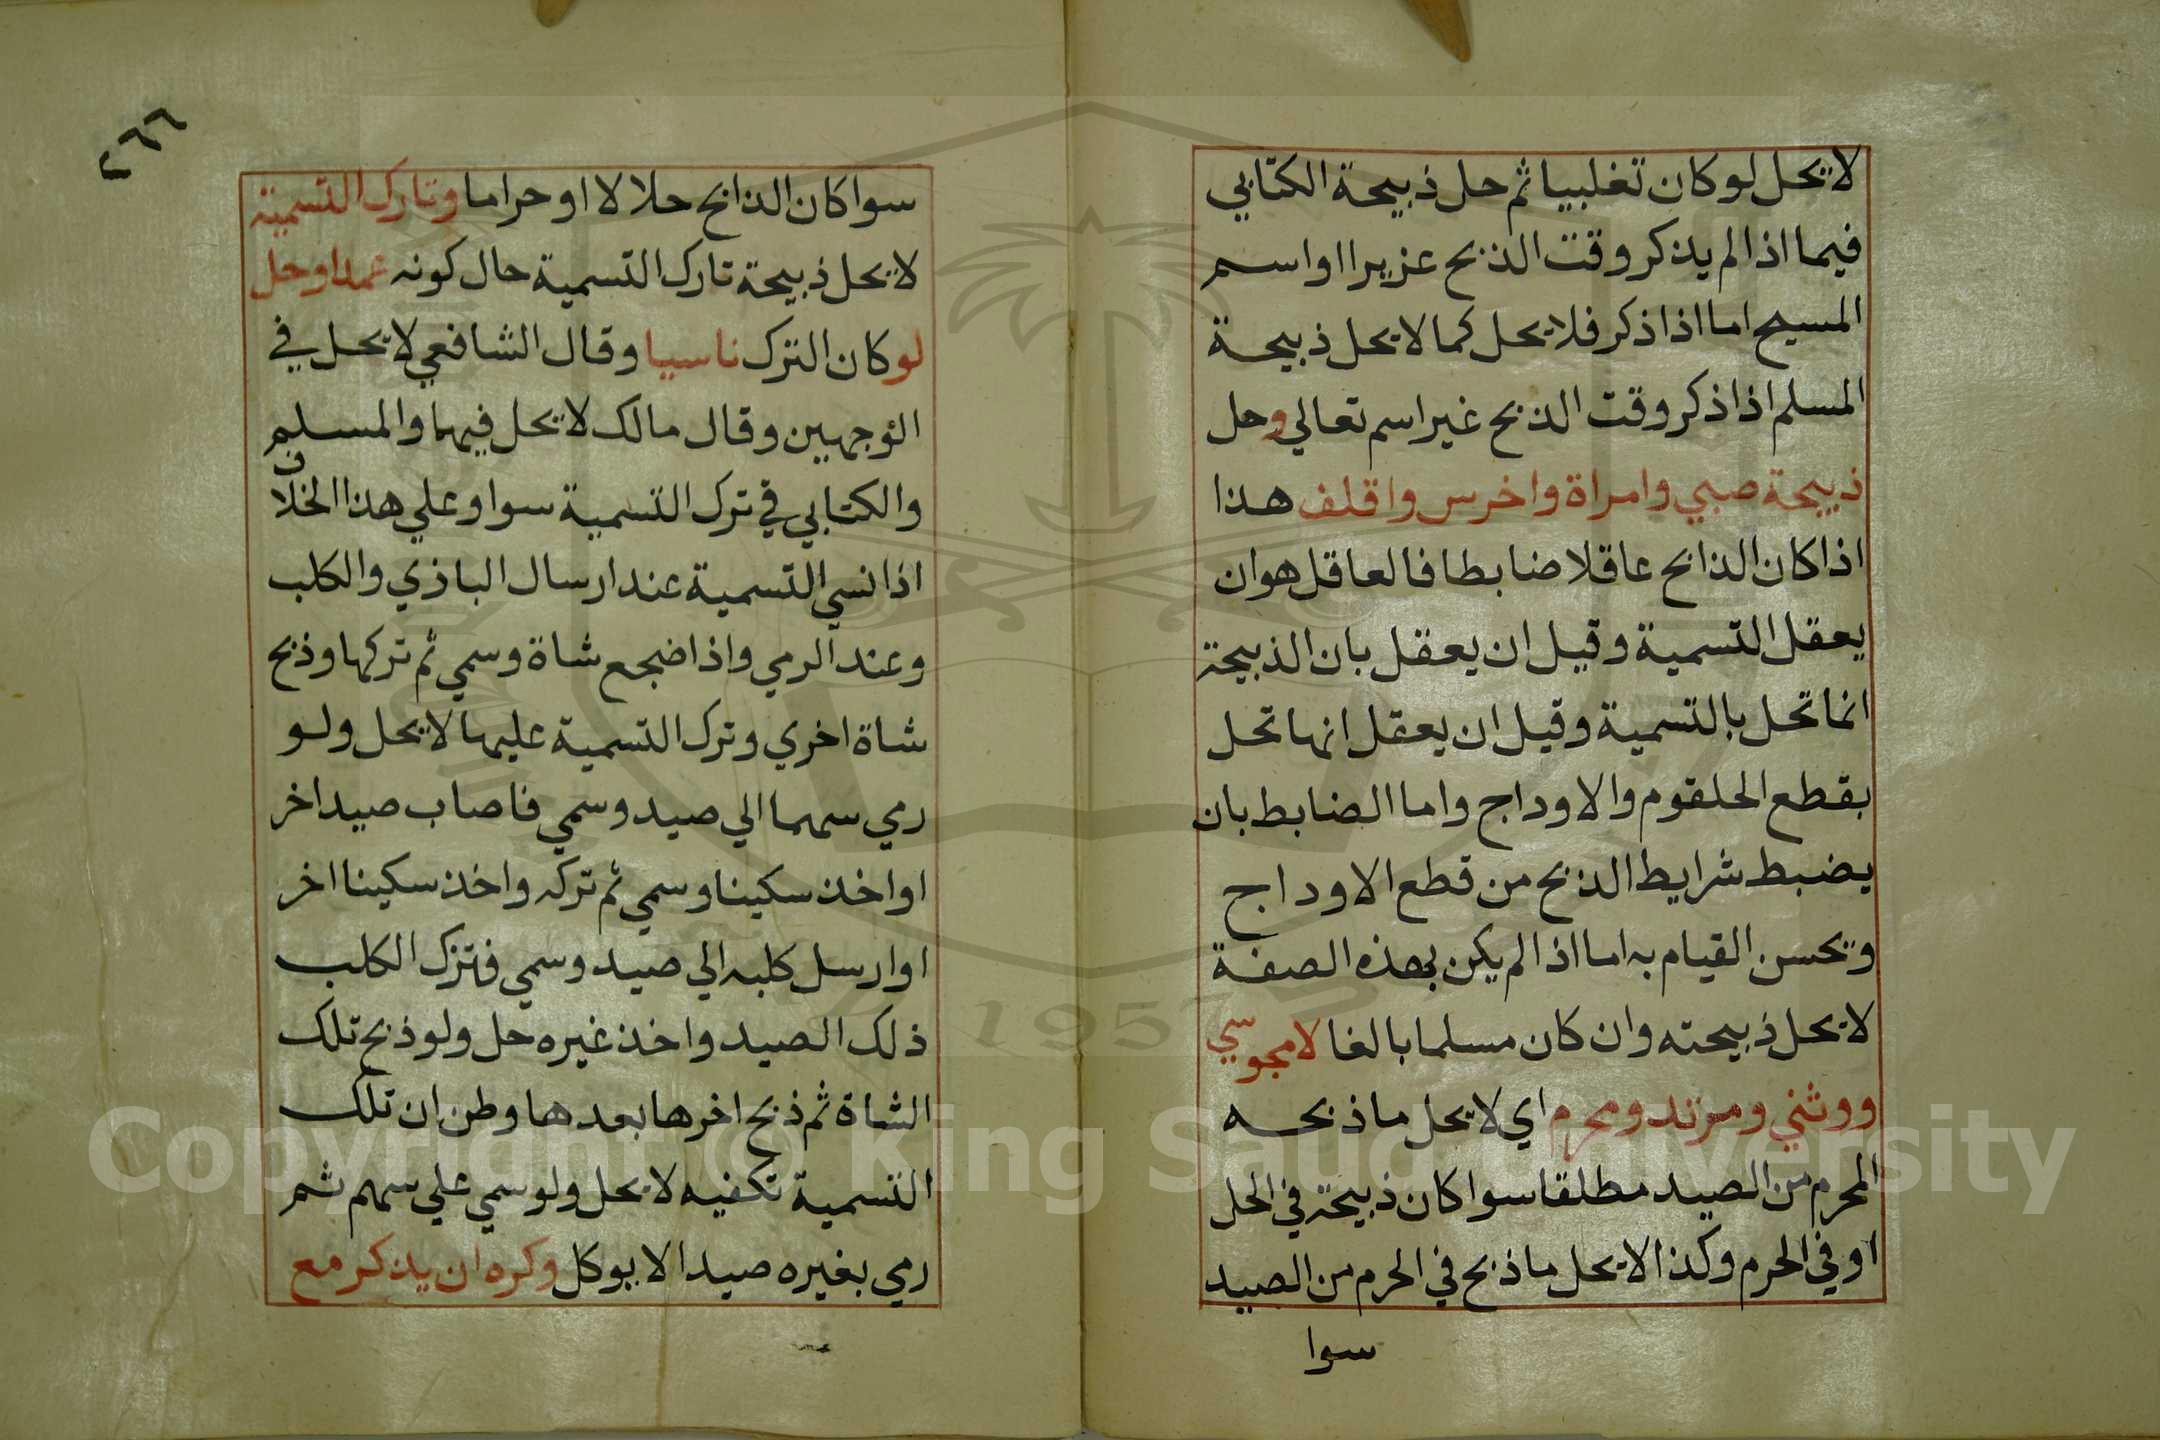 لا يحل لو كان تغلبيا ثم حل ذبيحة الكتابي
فيما اذا لم يذكر وقت الذبح عزيرا او اسم
المسيح اما اذا ذكر فلا يحل كما لا يحل ذبيحة
المسلم اذا ذكر وقت الذبح غير اسم تعالي وحل
ذبيحة صبي وامراة واخرس واقلف هذا
اذا كان الذابح عاقلا ضابطا فالعاقل هو ان
يعقل التسمية وقيل ان يعقل بان الذبيحة
انما تحل بالتسمية وقيل ان يعقل انها تحل
بقطع الحلقوم والاوداج واما الضابط بان
يضبط شرايط الذبح من قطع الاوداج
ويحسن القيام به اما اذا لم يكن بهذه الصفة
لا يحل ذبيحته وان كان مسلما بالغا لا مجوسي
ووثني ومرتد ومحرم اي لا يحل ما ذبحه
المحرم من الصيد مطلقا سوا كان ذبيحة في الحل
او في الحرم وكذا لا يحل ما ذبح في الحرم من الصيد
سوا
٢٦٦
سوا كان الذابح حلالا او حراما وتارك التسمية
لا يحل ذبيحة تارك التسمية حال كونه عمدا وحل
لو كان الترك ناسيا وقال الشافعي لا يحل في
الوجهين وقال مالك لا يحل فيهما والمسلم
والكتابي في ترك التسمية سوا وعلي هذا الخلاف
اذا نسي التسمية عند ارسال الباذي والكلب
وعند الرمي واذا اضجع شاة وسمي ثم تركها وذبح
شاة اخري وترك التسمية عليها لا يحل ولو
رمي سهما الي صيد وسمي فاصاب صيدا اخر
او اخذ سكينا وسمي ثم تركه واخذ سكينا اخر
او ارسل كلبه الي صيد وسمي فترك الكلب
ذلك الصيد واخذ غيره حل ولو ذبح تلك
الشاة ثم ذبح اخرها بعدها وطن ان تلك
التسمية تكفيه لا يحل ولو سمي علي سهم ثم
رمي بغيره صيدا لا يوكل وكره ان يذكر مع
Copyright © King Saud University
1957